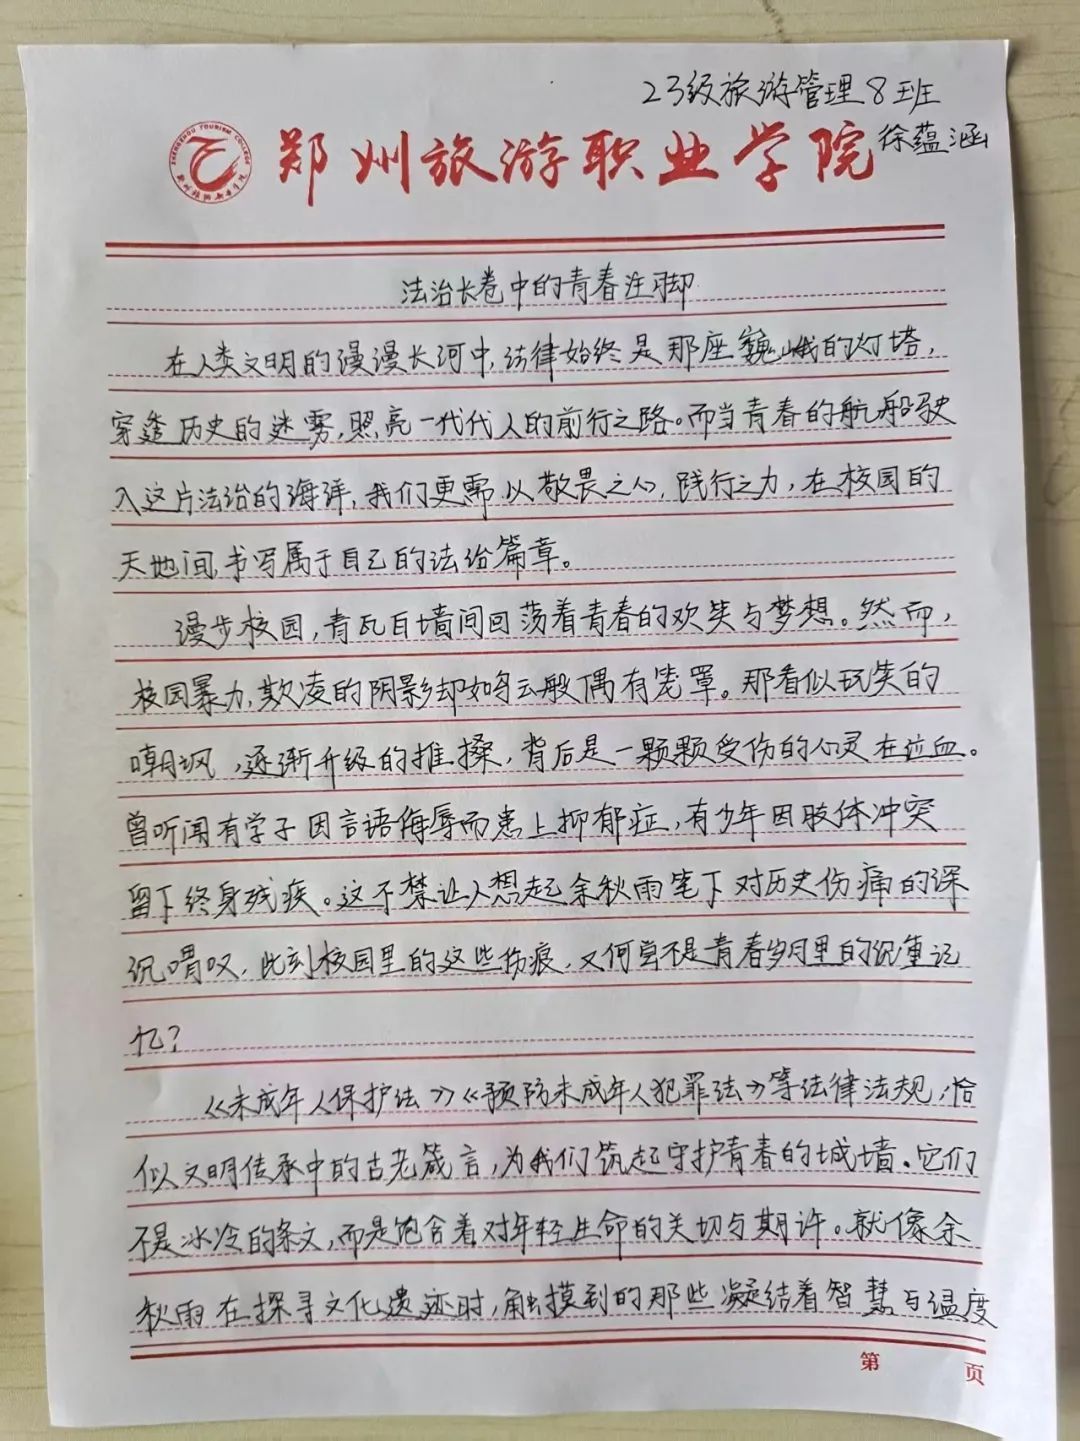 23级旅游管理8班
徐蕴涵
ZHENGZHOU TOURISM COLLEGE
郑州旅游职业学院
郑州旅游职业学院
法治长卷中的青春注脚
在人类文明的漫漫长河中,法律始终是那座巍峨的灯塔,
穿透历史的迷雾,照亮一代代人的前行之路。而当青春的航船驶
入这片法治的海洋,我们更需以敬畏之心,践行之力,在校园的
天地间,书写属于自己的法治篇章。
漫步校园,青瓦白墙间回荡着青春的欢笑与梦想。然而,
校园暴力,欺凌的阴影却如乌云般偶有笼罩。那看似玩笑的
嘲讽,逐渐升级的推搡,背后是一颗颗受伤的心灵在泣血。
曾听闻有学子因言语侮辱而患上抑郁症,有少年因肢体冲突
留下终身残疾。这不禁让人想起余秋雨笔下对历史伤痛的深
沉喟叹,此刻校园里的这些伤痕,又何尝不是青春岁月里的沉重记
忆?
《未成年人保护法》《预防未成年人犯罪法》等法律法规,恰
似文明传承中的古老箴言,为我们筑起守护青春的城墙。它们
不是冰冷的条文,而是饱含着对年轻生命的关切与期许。就像余
秋雨在探寻文化遗迹时,触摸到的那些凝结着智慧与温度
第 页